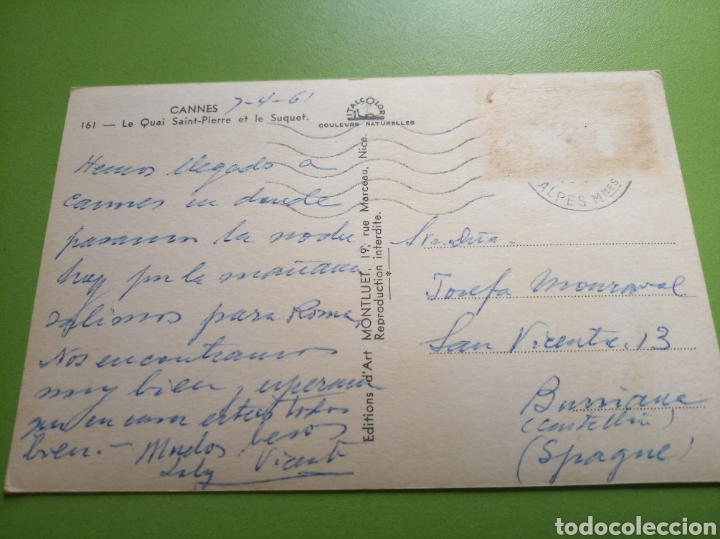 CANNES 7-4-61
161 — Le Quai Saint-Pierre et le Suquet.
ITALCOLOR
COULEURS NATURELLES
Hemos llegado a
Cannes en donde
pasamos la noche
hoy por la mañana
salimos para Roma
Nos encontramos
muy bien, esperamos
que en casa esteis todos
bien. - Muchos besos
Vicente
Editions d'Art MONTLUET, 19, rue Marceau, Nice.
Reproduction interdite.
ALPES MMES
Sra. Dña.
Josefa Monroval
San Vicente, 13
Burriana
(Castellón)
(Spagne)
todocoleccion